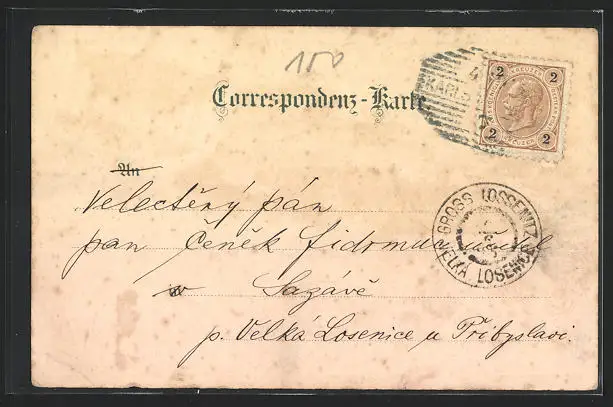 150
Correspondenz-Karte
2 KREUZER 2
2 2
An
Velectěný pán
pan Čeněk Fidrmuc, učitel
v Sazávě
p. Velká Losenice u Přibyslavi.
GROSS LOSSENITZ
VELKÁ LOSENICE